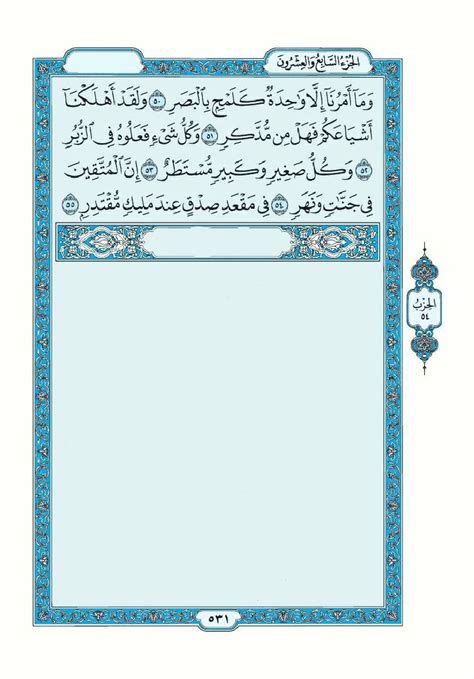 الجُزْءُ السَّابِعُ وَالعِشْرُونَ
وَمَآ أَمْرُنَآ إِلَّا وَٰحِدَةٌ كَلَمْحٍۭ بِٱلْبَصَرِ ٥٠ وَلَقَدْ أَهْلَكْنَآ
أَشْيَاعَكُمْ فَهَلْ مِن مُّدَّكِرٍ ٥١ وَكُلُّ شَىْءٍ فَعَلُوهُ فِى ٱلزُّبُرِ
٥٢ وَكُلُّ صَغِيرٍ وَكَبِيرٍ مُّسْتَطَرٌ ٥٣ إِنَّ ٱلْمُتَّقِينَ
فِى جَنَّٰتٍ وَنَهَرٍ ٥٤ فِى مَقْعَدِ صِدْقٍ عِندَ مَلِيكٍ مُّقْتَدِرٍۭ ٥٥
الحِزْبُ
٥٤
٥٣١